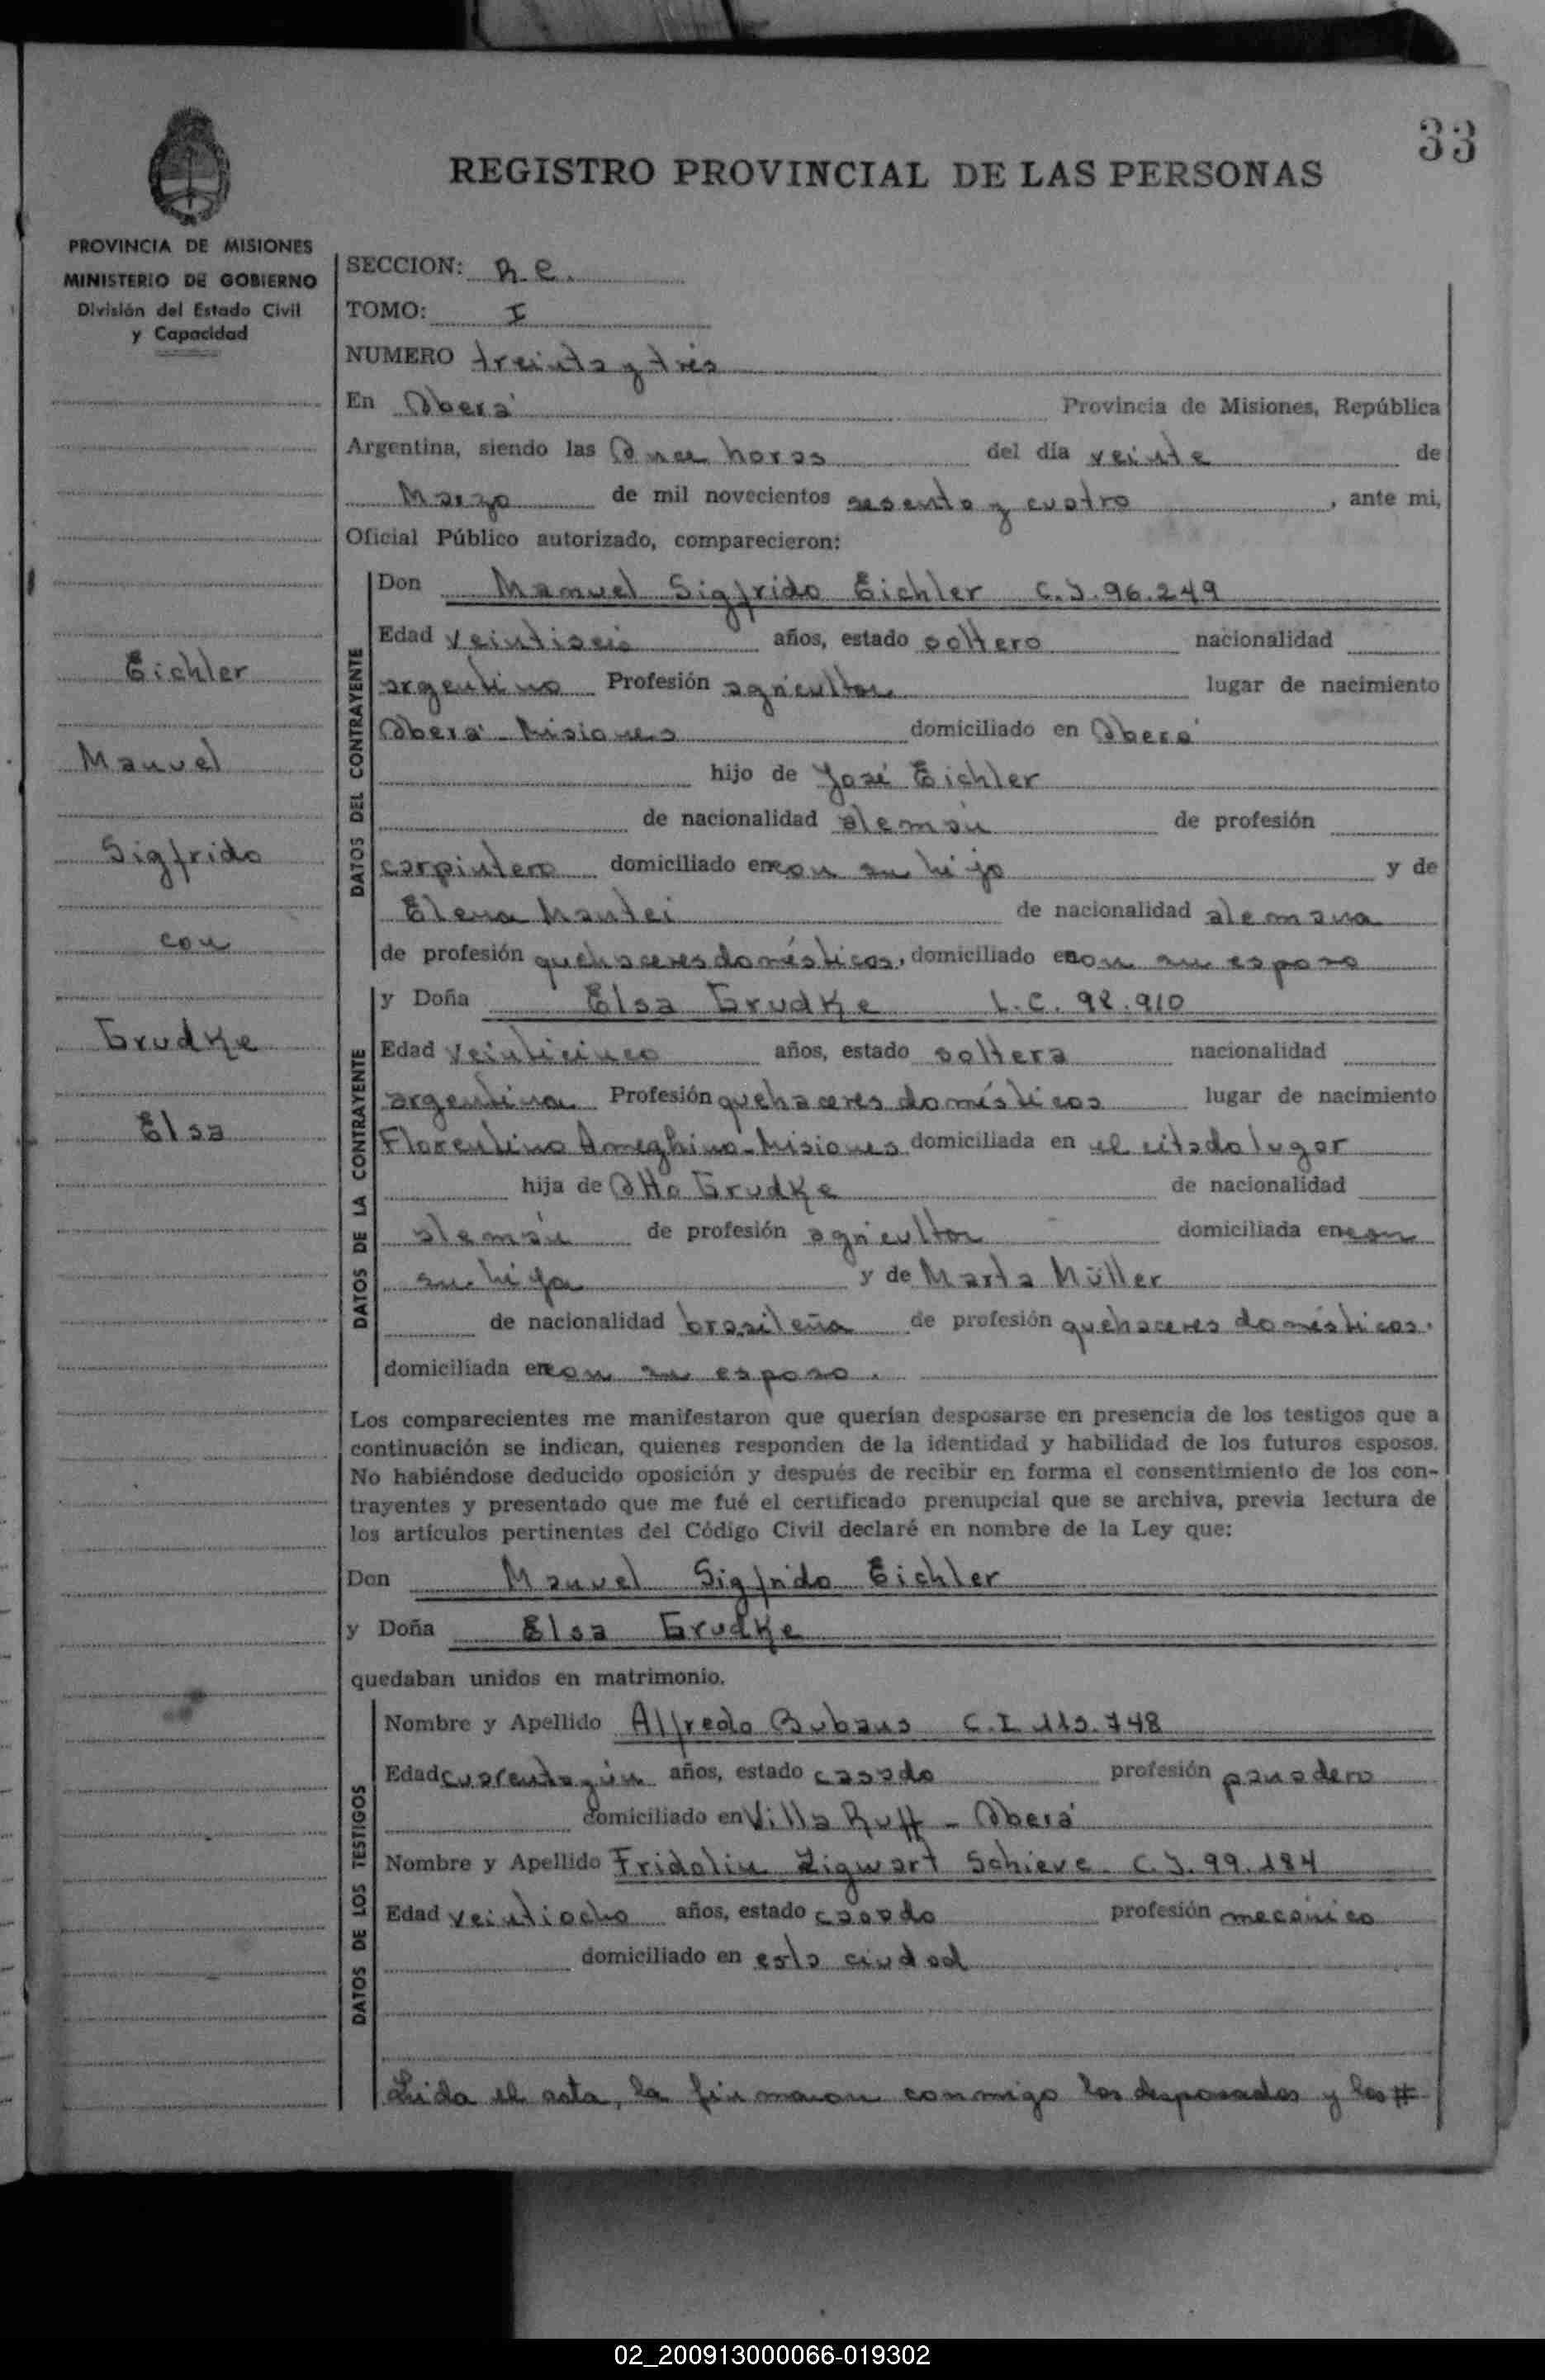 33
REGISTRO PROVINCIAL DE LAS PERSONAS
PROVINCIA DE MISIONES
MINISTERIO DE GOBIERNO
División del Estado Civil
y Capacidad
Eichler
Manuel
Sigfrido
con
Grudke
Elsa
SECCION: R.C.
TOMO: I
NUMERO treinta y tres
En Oberá Provincia de Misiones, República
Argentina, siendo las Once horas del día veinte de
Marzo de mil novecientos sesenta y cuatro, ante mi,
Oficial Público autorizado, comparecieron:
DATOS DEL CONTRAYENTE
Don Manuel Sigfrido Eichler C.I. 96.249
Edad veintiseis años, estado soltero nacionalidad
argentino Profesión agricultor lugar de nacimiento
Oberá - Misiones domiciliado en Oberá
hijo de José Eichler
de nacionalidad alemán de profesión
carpintero domiciliado en con su hijo y de
Elena Mantei de nacionalidad alemana
de profesión quehaceres domésticos, domiciliado en con su esposo
DATOS DE LA CONTRAYENTE
y Doña Elsa Grudke L.C. 92.910
Edad veinticinco años, estado soltera nacionalidad
argentina Profesión quehaceres domésticos lugar de nacimiento
Florentino Ameghino - Misiones domiciliada en el citado lugar
hija de Otto Grudke de nacionalidad
alemán de profesión agricultor domiciliada en con
su hija y de Marta Müller
de nacionalidad brasileña de profesión quehaceres domésticos.
domiciliada en con su esposo.
Los comparecientes me manifestaron que querían desposarse en presencia de los testigos que a
continuación se indican, quienes responden de la identidad y habilidad de los futuros esposos.
No habiéndose deducido oposición y después de recibir en forma el consentimiento de los con-
trayentes y presentado que me fué el certificado prenupcial que se archiva, previa lectura de
los artículos pertinentes del Código Civil declaré en nombre de la Ley que:
Don Manuel Sigfrido Eichler
y Doña Elsa Grudke
quedaban unidos en matrimonio.
DATOS DE LOS TESTIGOS
Nombre y Apellido Alfredo Bubans C.I. 113.748
Edad cuarenta y ún años, estado casado profesión panadero
domiciliado en Villa Ruff - Oberá
Nombre y Apellido Fridolin Zigwart Schieve C.I. 99.184
Edad veintiocho años, estado casado profesión mecánico
domiciliado en esta ciudad
Leida el acta, la firmaron conmigo los desposados y los #
02_200913000066-019302